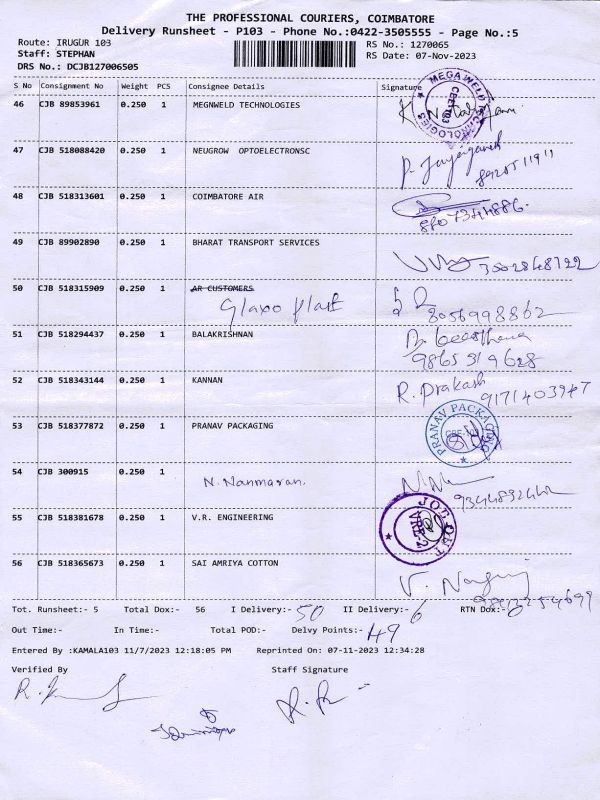 THE PROFESSIONAL COURIERS, COIMBATORE
Delivery Runsheet - P103 - Phone No.:0422-3505555 - Page No.:5
Route: IRUGUR 103
Staff: STEPHAN
DRS No.: DCJB127006505
RS No.: 1270065
RS Date: 07-Nov-2023
S No Consignment No Weight PCS Consignee Details Signature
46 CJB 89853961 0.250 1 MEGNWELD TECHNOLOGIES
MEGAWELD TECHNOLOGIES
CBE1103
47 CJB 518088420 0.250 1 NEUGROW OPTOELECTRONSC
48 CJB 518313601 0.250 1 COIMBATORE AIR
8807344886.
49 CJB 89902890 0.250 1 BHARAT TRANSPORT SERVICES
50 CJB 518315909 0.250 1 AR CUSTOMERS
Glaxo plast
8056998862
51 CJB 518294437 0.250 1 BALAKRISHNAN
9865519628
52 CJB 518343144 0.250 1 KANNAN
R. Prakash
9171403947
53 CJB 518377872 0.250 1 PRANAV PACKAGING
PRANAV PACKAGING
54 CJB 300915 0.250 1 N. Nanmaran.
55 CJB 518381678 0.250 1 V.R. ENGINEERING
JOB OUT
VRE-2
56 CJB 518365673 0.250 1 SAI AMRIYA COTTON
Tot. Runsheet:- 5 Total Dox:- 56 I Delivery:- 50 II Delivery:- 6 RTN Dox:-
Out Time:- In Time:- Total POD:- Delvy Points:- 49
Entered By :KAMALA103 11/7/2023 12:18:05 PM Reprinted On: 07-11-2023 12:34:28
Verified By Staff Signature